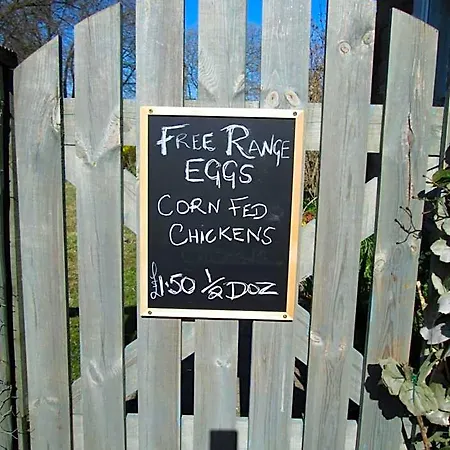 FREE RANGE
EGGS
CORN FED
CHICKENS
£1.50 ½ DOZ